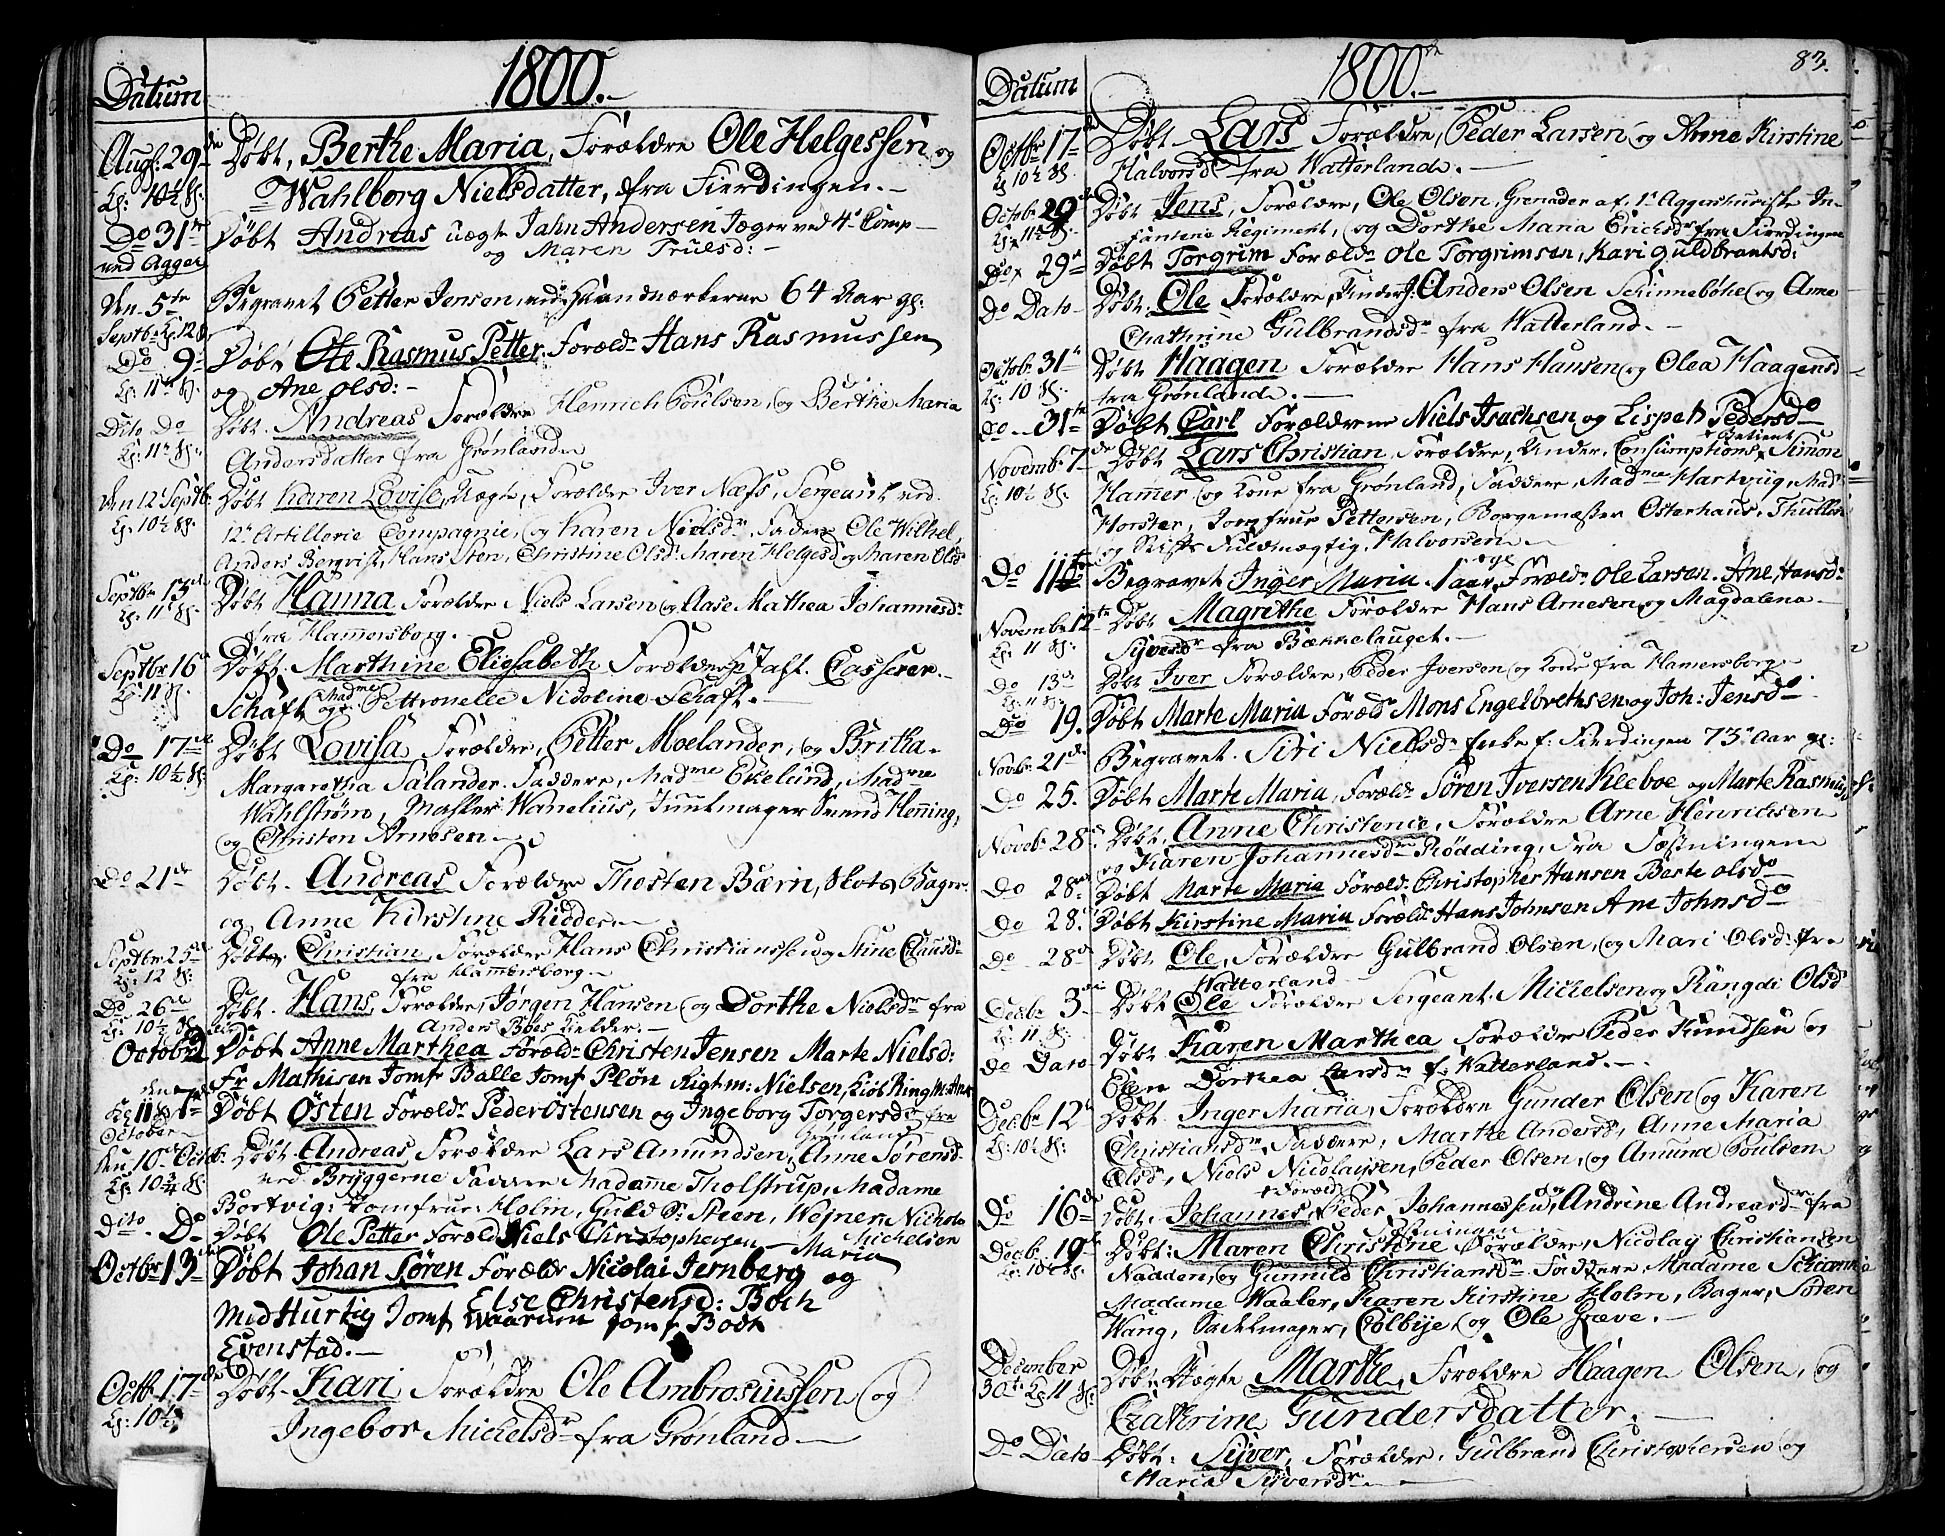 Datum
1800.
Augs: 29de
Døbt, Berthe Maria, Forældre Ole Helgessen og
Kl: 10½ Sl:
Wahlborg Nielsdatter, fra Fierdingen.
Do 31te
Døbt Andreas uægte Jahn Andersen Jæger ved 4de Comp
ved Agger
og Maren Truelsd:
Den 5te
Begravet Petter Jensen, ved Haandværkerne 64 Aar gl:
Septbr Kl. 12
Do 9de
Døbt Ole Rasmus Petter. Foræld: Hans Rasmussen
Kl. 11 Sl.
og Ane Olsd:
Dito Do
Døbt. Andreas Forældre Henrich Poulsen, og Berthe Maria
Kl: 11 Sl:
Andersdatter fra Grønland
Den 12 Septbr
Døbt Karen Lovise, Uægte, Forældre Iver Næss, Sergeant ved
Kl. 10½ Sl.
12te Artillerie Compagnie, og Karen Nielsdr. Faddere Ole Wilhel,
Anders Bergvist, Hans Sten, Christine Olsdr Maren Helgesd og Maren Olsd
Septbr 13de
Døbt Hanna Forældre Niels Larsen og Aase Mathea Johannesd:
Kl. 11 Sl:
fra Hammersborg.
Septbr 16
Døbt. Marthine Elisabeth Forældre Casserer
Kl. 11 Sl.
Schaft og Madme Pettronelle Nicoline Schaft.
Do 17de
Døbt Lovisa Forældre, Petter Moelander, og Britha
Kl. 10½ Sl
Margaretha Salander. Faddere, Madme Ekelund, Madme
Wahlstrøm, Mahler Wanelius, Svend Henning,
og Christen Arnesen
Do 21de
Døbt. Andreas Forældre Thosten Bærn, Bager
og Anne Kirstine Ridder
Septbr 25de
Døbt Christian, Forældre Hans Christianssen og Stine Clausd:
Kl. 12 Sl.
fra Hammersborg
Do 26de
Døbt. Hans, Forældre, Jørgen Hansen og Dorthe Nielsdr fra
Kl: 10½ Sl:
Anders Kielder.
Octobr 2
Døbt Anne Marthea Foræld: Christen Jensen Marte Nielsd:
Fr Mathisen Jomf Balle Jomf Pløn Rigtm: Nielsen,
Døbt Østen Forældr Peder Østensen og Ingeborg Torgersdr fra
October
Grønland
Den 10de Octbr:
Døbt. Andreas Forældre Lars Amundsen, Anne Sørensd.
Kl. 10¾ Sl.
ved Bryggerne Faddere Madamme Tholstrup, Madame
Bortvig: Jomfrue Holm, Guld Sr: Steen, Wejner,
Dito. Do
Døbt Ole Petter Foræld Niels Christophersen Maria Michelsen
Octbr 13
Døbt Johan Søren Forældr Nicolai Jernberg og
Else Christensd: Boch
Mad Hurtig Jomf Waarum Jomf Bodt
Evenstad.
Octbr 17de
Døbt. Kari Forældre Ole Ambrosiussen og
Kl: 10½
Ingebor Mickelsdr fra Grønland
Datum
1800.
83.
Octbr 17
Døbt Lars Forældre, Peder Larsen og Anne Kirstine
Kl 10½ Sl.
Halvorsd fra Watterland.
Octobr 29
Døbt Jens, Forældre, Ole Olsen, Grenader af 1te Aggershuusiske In-
Kl. 11½ Sl.
fanterie Regiment, og Dorthe Maria Ericksdr fra Fierdingen
Do 29
Døbt Torgrim Foræld: Ole Torgrimsen, Kari Guldbrantsd:
Do Dato
Døbt. Ole Forældre, Anders Olsen Schinnebøke og Anne
Chathrine Gulbrandsdr fra Watterland.
Octobr. 31te
Døbt Haagen Forældre Hans Hansen og Olea Haagensd
Kl: 10 Sl.
fra Grønland.
Do 31te
Døbt Carl Forældrene Niels Isachsen og Lispet Pedersd
Novembr 7de
Døbt Lars Christian, Forældre, Under Consumptions Betient Simon
Kl: 10½ Sl.
Hamer og Kone fra Grønland, Faddere, Madme Hartvig, Mad:
Horster, Jomfrue Pettersen, Borgemæster Osterhaus,
og Stifts Fuldmægtig, Halvorsen
Do 11te
Begravet Inger Maria. 1 aar, Foræld: Ole Larsen. Ane Hansd:
Novembr 12te
Døbt Magrethe Forældre Hans Arnesen og Magdalena
Kl. 11 Sl:
Syversdr fra Bækkelauget.
Do 13de
Døbt Iver Forældre, Peder Iversen og Kone fra Hamersborg
Kl. 11 Sl.
Do 19.
Døbt Marte Maria Foræld Mons Engelbrethsen og Joh: Jensd
Novbr. 21de
Begravet. Siri Nielsdr Enke f: Fierdingen 73 Aar gl:
Do 25.
Døbt Marte Maria, Foræld: Søren Iversen Kleboe og Marte Rasmus
Novbr 28
Døbt, Anne Christence, Forældre Arne Henrichsen
og Karen Johannesdr Rødding, fra Fæstningen
Do 28
Døbt Marte Maria Foræld: Christopher Hansen Berte Olsd
Do 28
Døbt Kirstine Maria Foræld: Hans Johnsen Ane Johnsd
Do 28
Døbt Ole, Forældre Gulbrand Olsen, og Mari Olsd: fra
Watterland
Decbr. 3
Døbt Ole Forældre Sergeant Mickelsen og Rangdi Olsd
Kl. 11 Sl.
Do Dato
Døbt Karen Marthea Forældre Peder Knudsen og
Elen Dorthea Larsdr f. Watterland.
Decbr 12
Døbt. Inger Maria, Forældre Gunder Olsen og Karen
Kl: 10½ Sl:
Christiansdr, Faddere, Marthe Andersd, Anne Maria
Olsdr, Niels Nicolaysen, Peder Olsen, og Amund Poulsen
Do 16de
Døbt. Johannes, Foræld Peder Johannessen, og Andrine Andreasdr fra
Fæstningen
Decbr. 19
Døbt: Maren Christine Forældre, Nicolay Christiansen
Kl. 10½ Sl.
Nadden, og Gunnild Christiansdr Faddere Madame
Madame Waaler, Karen Kirstine Holm, Bager, Søren
Wang, Sadelmager, Colbye, og Ole Græve.
December
Døbt. Uægte Marthe, Forældre Haagen Olsen, og
30te Kl. 11 Sl:
Cathrine Gundersdatter.
Do Dato
Døbt: Syver, Forældre, Gulbrand Christophersen og
Maria Syversdr.